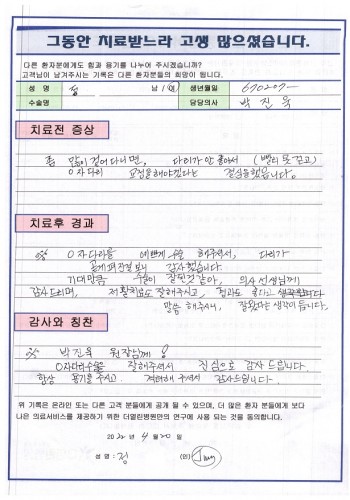 그동안 치료받느라 고생 많으셨습니다.
다른 환자분에게도 힘과 용기를 나누어 주시겠습니까?
고객님이 남겨주시는 기록은 다른 환자분들의 희망이 됩니다.
성 명 정 남 / 여 생년월일 670207-
수술명 담당의사 박진욱
치료전 증상
좀 많이 걸어다니면, 다리가 안 좋아서 (빨리 못 걷고)
O자다리 교정을해야겠다는 결심을했습니다.
치료후 경과
O자다리를 예쁘게 수술 해주셔서, 다리가
곧게 펴진걸 보니 감사했습니다.
기대만큼 수술이 잘된것 같아, 의사선생님께
감사드리며, 재활치료도 잘해주시고, 결과도 좋다고
말씀 해주셔서, 잘했다는 생각이 듭니다.
감사와 칭찬
박진욱 원장님께!
O자다리수술을 잘해주셔서 진심으로 감사 드립니다.
항상 용기을 주시고 격려해 주셔서 감사드립니다.
위 기록은 온라인 또는 다른 고객 분들에게 공개 될 수 있으며, 더 많은 환자 분들에게 보다
나은 의료서비스를 제공하기 위한 더열린병원만의 연구에 사용 되는 것을 동의합니다.
2022년 4월 20일
성 명 : 정 (인)